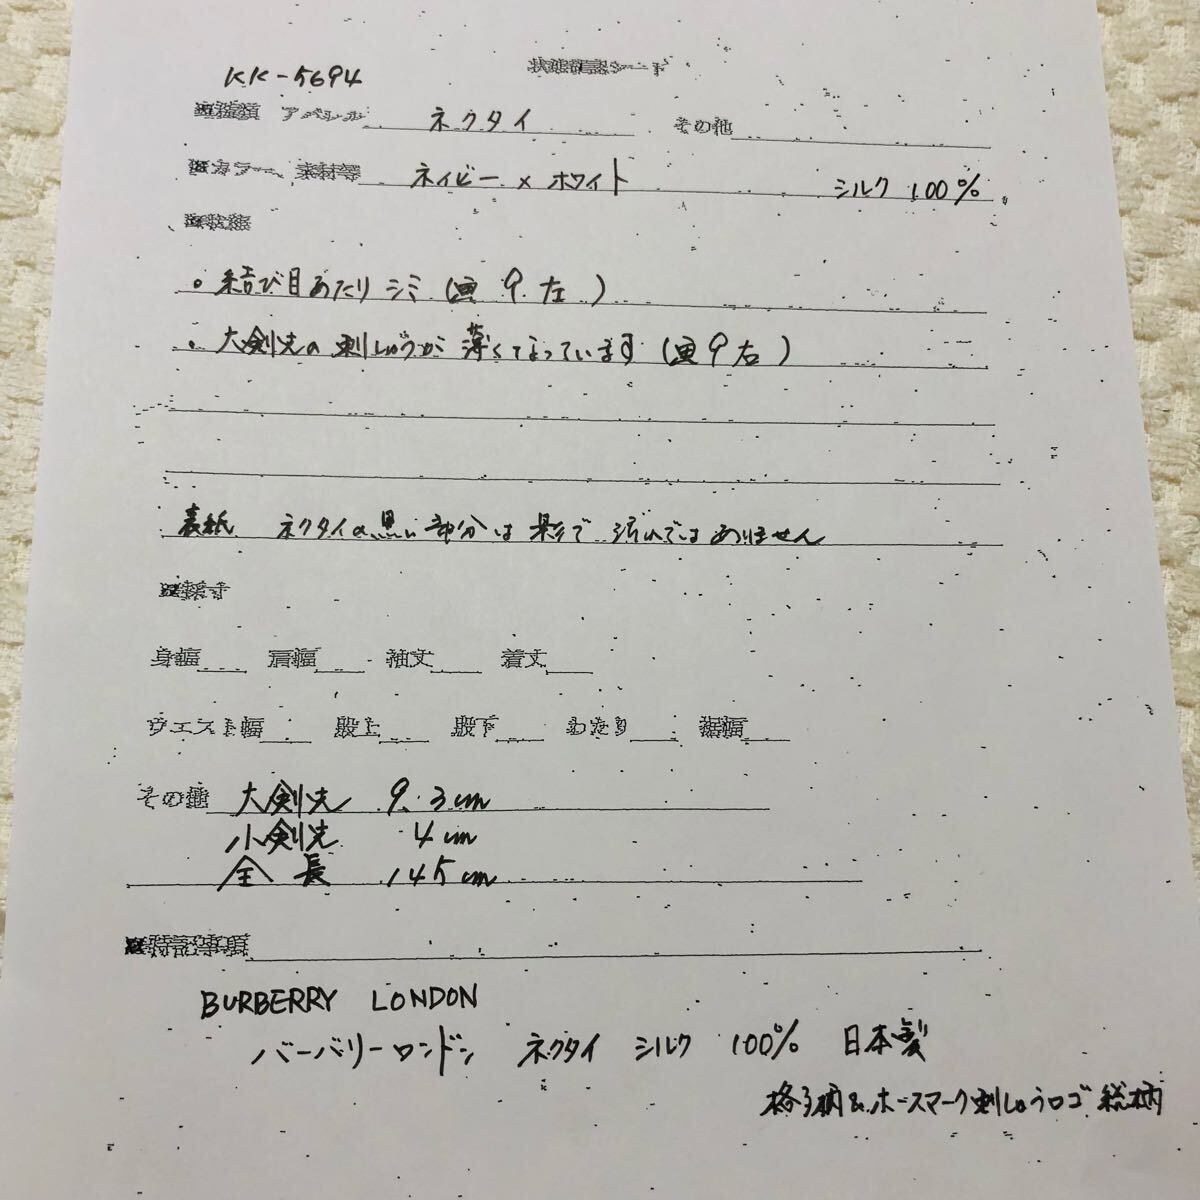 状態確認シート
KK-5694
※種類 アパレル ネクタイ その他
※カラー、素材等 ネイビー × ホワイト シルク 100%
※状態
・結び目あたり シミ (画 9 左 )
・大剣先の刺しゅうが 薄くなっています (画 9 右 )
表紙 ネクタイの黒い部分は 影で 汚れではありません
※採寸
身幅 肩幅 袖丈 着丈
ウエスト幅 股上 股下 わたり 裾幅
その他 大剣先 9.3cm
小剣先 4cm
全長 145cm
※特記事項
BURBERRY LONDON
バーバリーロンドン ネクタイ シルク 100% 日本製
格子柄&ホースマーク刺しゅうロゴ 総柄